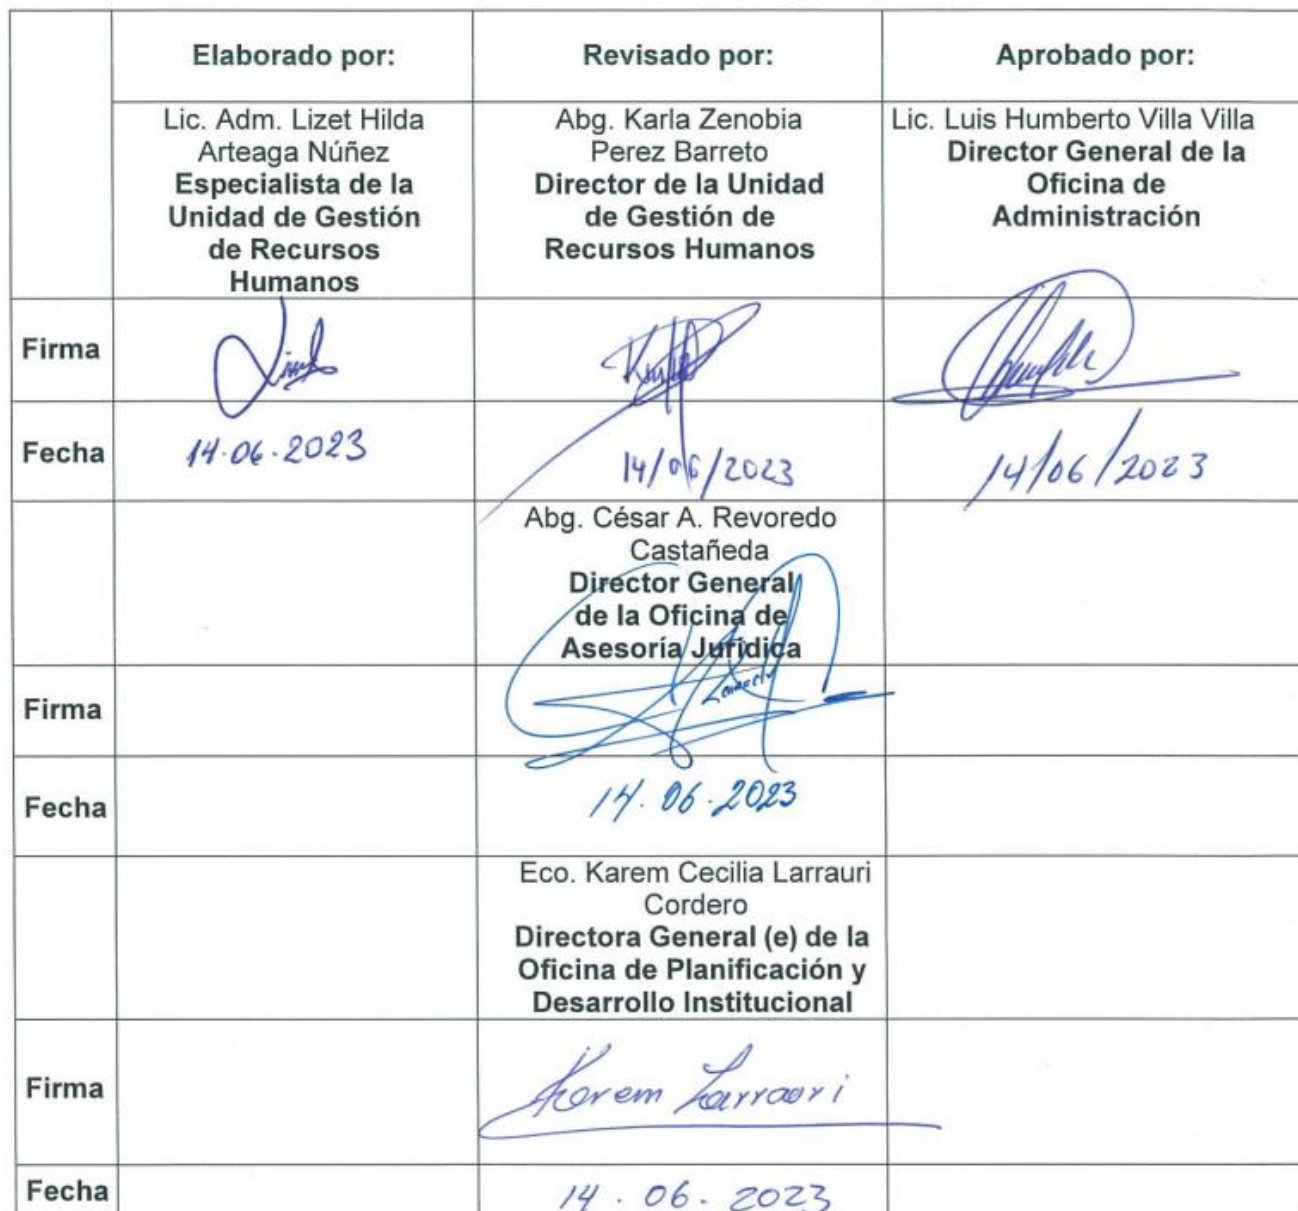 Elaborado por:
Revisado por:
Aprobado por:
Lic. Adm. Lizet Hilda
Arteaga Núñez
Especialista de la
Unidad de Gestión
de Recursos
Humanos
Abg. Karla Zenobia
Perez Barreto
Director de la Unidad
de Gestión de
Recursos Humanos
Lic. Luis Humberto Villa Villa
Director General de la
Oficina de
Administración
Firma
Fecha
14.06.2023
14/06/2023
14/06/2023
Abg. César A. Revoredo
Castañeda
Director General
de la Oficina de
Asesoría Jurídica
Firma
Fecha
14.06.2023
Eco. Karem Cecilia Larrauri
Cordero
Directora General (e) de la
Oficina de Planificación y
Desarrollo Institucional
Firma
Karem Larrauri
Fecha
14.06.2023